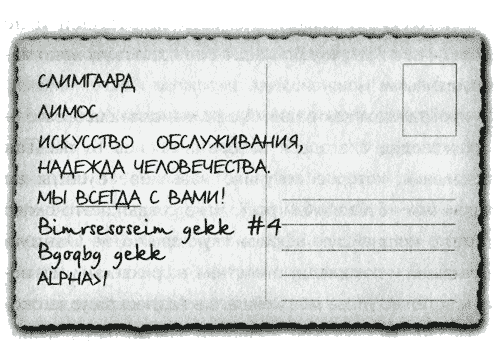 СЛИМГААРД
ЛИМОС
ИСКУССТВО ОБСЛУЖИВАНИЯ,
НАДЕЖДА ЧЕЛОВЕЧЕСТВА.
МЫ ВСЕГДА С ВАМИ!
Bimrsesoseim gekk #4
Bgoqby gekk
ALPHA>1